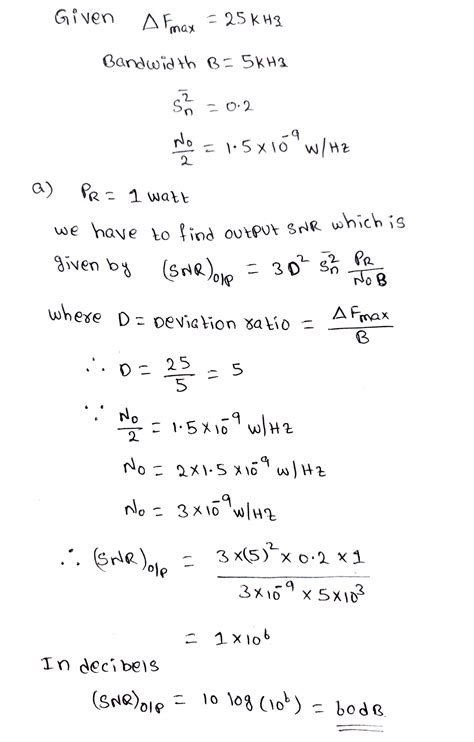 Given ΔFmax = 25KHz
Bandwidth B = 5KHz
S̄n² = 0.2
No/2 = 1.5×10⁻⁹ W/Hz
a) PR = 1 watt
we have to find output SNR which is
given by (SNR)o/p = 3D² S̄n² PR/NoB
where D = Deviation ratio = ΔFmax/B
∴ D = 25/5 = 5
∵ No/2 = 1.5×10⁻⁹ W/Hz
No = 2×1.5×10⁻⁹ W/Hz
No = 3×10⁻⁹ W/Hz
∴ (SNR)o/p = 3×(5)²×0.2×1 / 3×10⁻⁹×5×10³
= 1×10⁶
In decibels
(SNR)o/p = 10 log(10⁶) = 60dB